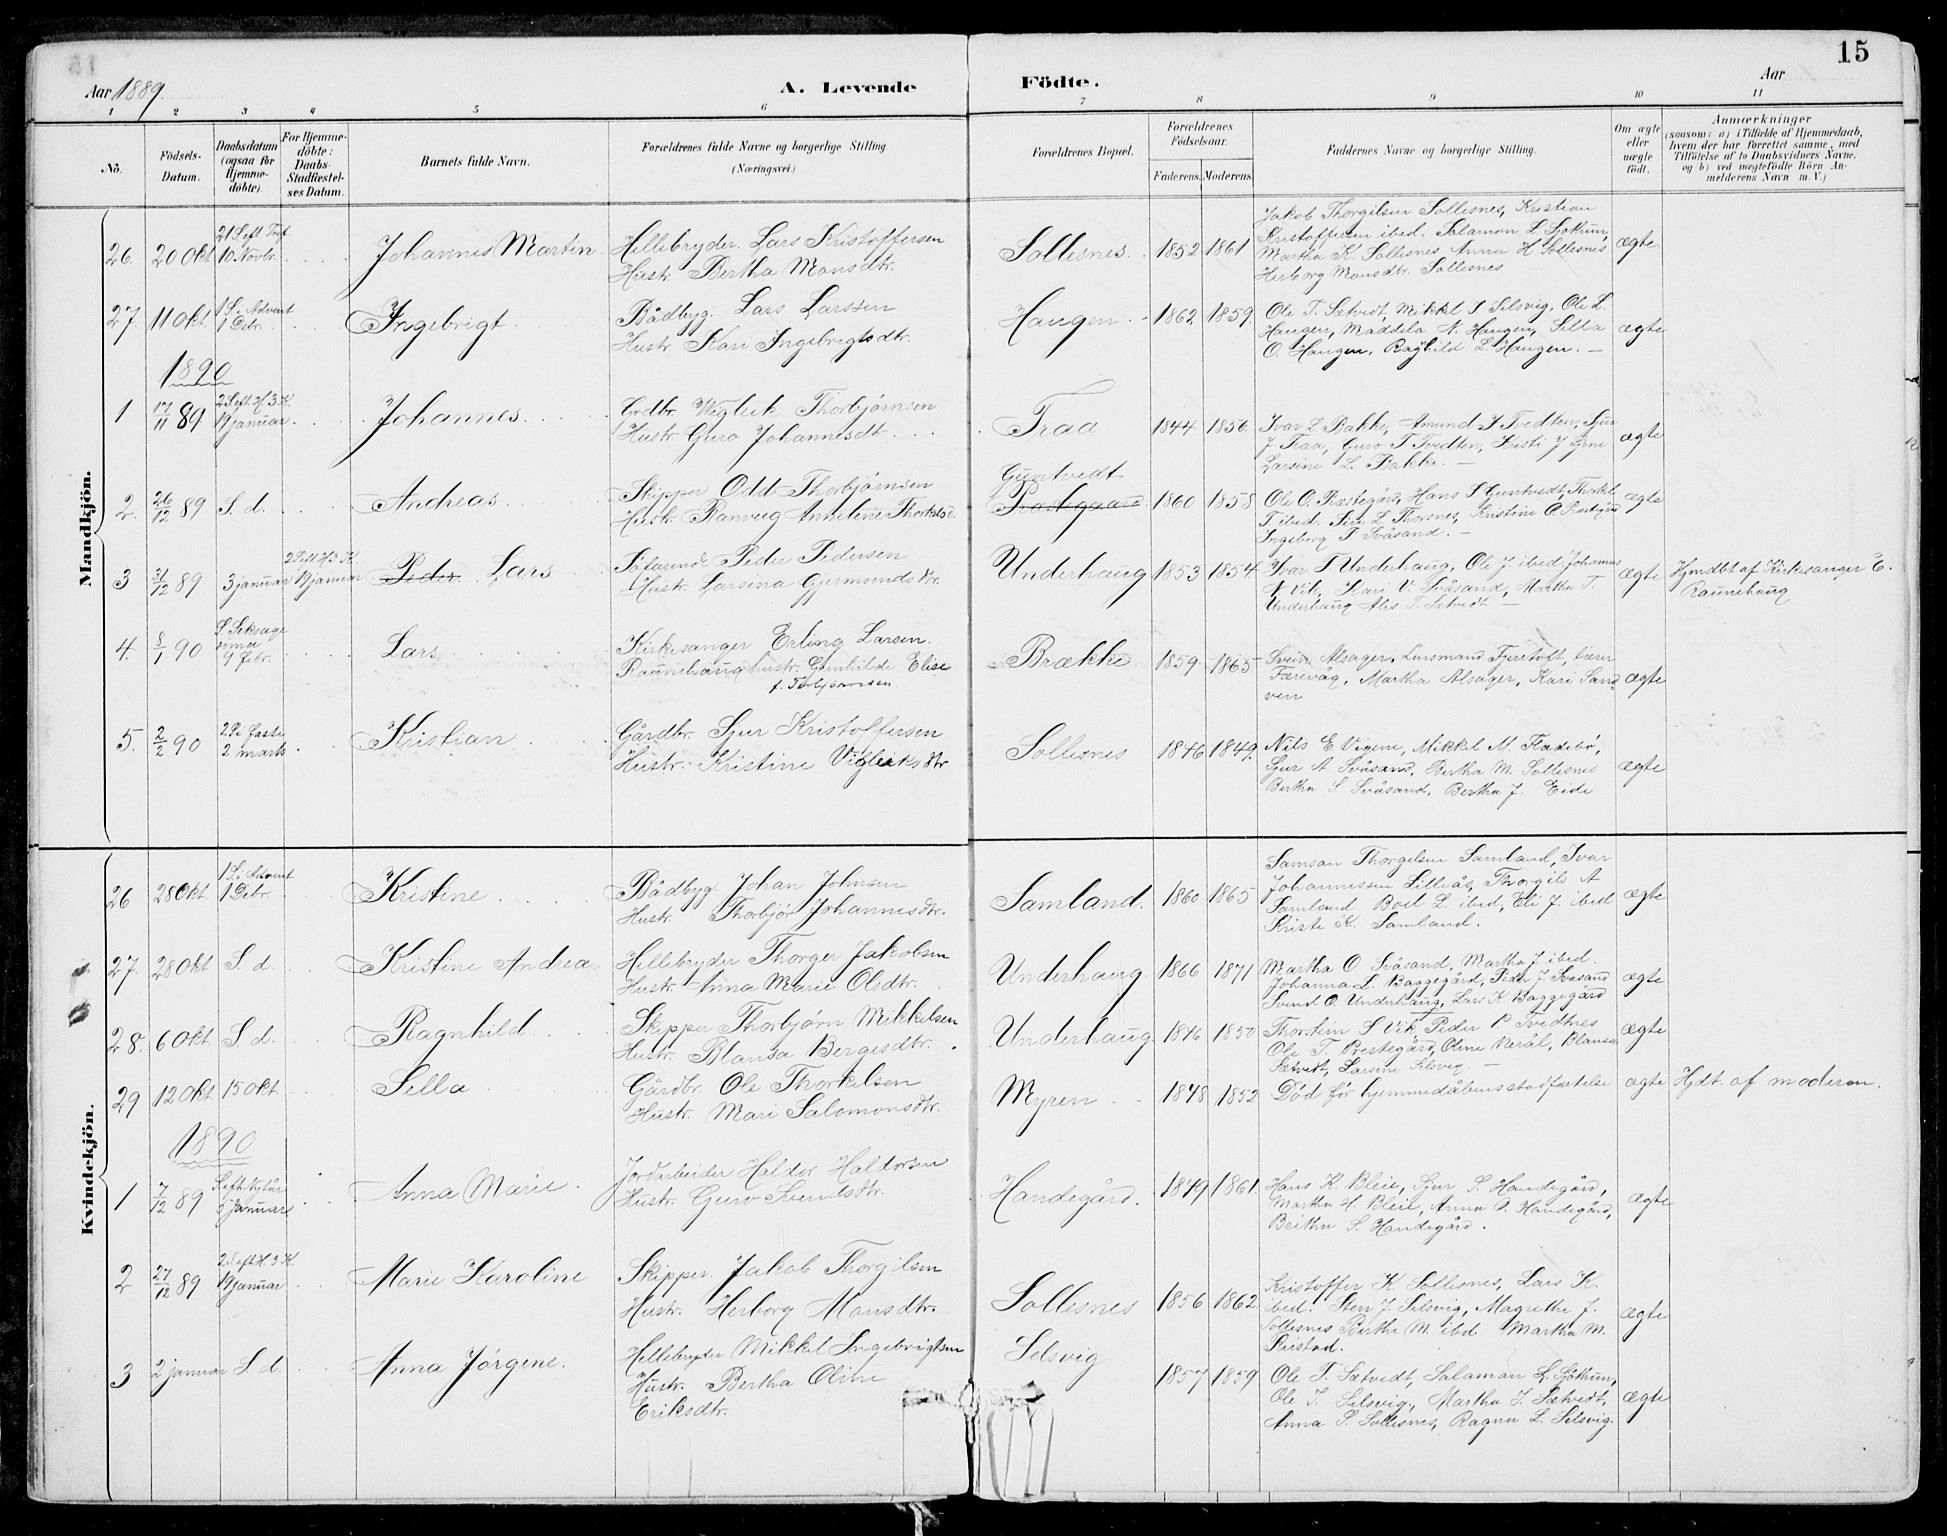 15
Aar 1889.
A. Levende Födte.
Aar
1 2 3 4 5 6 7 8 9 10 11
No.
Födsels-Datum.
Daabsdatum (ogsaa for Hjemmedöbte).
For Hjemmedöbte: Daabs-Stadfæstelses Datum.
Barnets fulde Navn.
Forældrenes fulde Navne og borgerlige Stilling. (Næringsvei.)
Forældrenes Bopæl.
Forældrenes Födselsaar.
Faderens. Moderens.
Faddernes Navne og borgerlige Stilling.
Om ægte eller uægte födt.
Anmærkninger
(saasom: a) i Tilfælde af Hjemmedaab, hvem der har forrettet samme, med Tilföielse af to Daabsvidners Navne, og b) ved uægtefödte Börn Anmelderens Navn m. V.)
Mandkjön.
26. 20 Okt 21 S eft Trf 10 Novbr. Johannes Martin Hillebryder. Lars Kristoffersen Sollesnes. 1852 1861 Jakob Thorgilsen Sollesnes, Kristian ægte
Hustr Bertha Monsdtr. Kristoffersen ibed. Salamon L Sjøthun,
Martha K. Sollesnes Anna H Sollesnes
Herborg Monsdtr. Sollesnes
27. 11 Okt. 1 S i Advent 1 Debr. Ingebrigt Bådbyg. Lars Larssen Haugen 1862 1859 Ole T. Sætvedt, Mikkel S Selsvig, Ole L. ægte
Hustr. Kari Ingebrigtsdtr. Haugen, Maddela N. Haugen, Sella
O. Haugen, Raghild L. Haugen. —
1890
1 17/11 89 2 S eft H. 3. K. 19 januar Johannes Grdbr. Viglek Thorbjørnsen Traa 1844 1856 Ivar L Bakke, Amund J Tvedten, Sjur ægte
Hustr Guro Johannesdt. J Traa, Guro T Tvedten, Kristi J Lione
Larsine L. Bakke. —
2. 26/12 89 S. d. Andreas Skipper Odd Thorbjørnsen Guntvedt Præstgaard 1860 1858 Ole O. Præstegård, Hans S Guntvedt, Thorkel ægte
Hustr. Ranvug Annlene Thorklsd. T ibed. Siri L Thorsnes, Kristine O Præstegård
Ingeberg T Svåsand. —
3 31/12 89 3 januar 2 S eft H 3 K. 19 januar Peder. Lars Søfarende Peder Pedersen Underhaug 1853 1854 Ivar T Underhaug, Ole J ibed. Johannes ægte Hjmdbt af Kirkesanger E. Raunehaug
Hustr. Larsina Gjermunds dtr. N Vik, Kari V. Svåsand, Martha T.
Underhaug Alis T. Sætvedt —
4. 8/1 90 S Seksagesima 9 febr. Lars Kirkesanger Erling Larsen. Brække. 1859 1865 Svein Alsager, Lensmand Tjeretoft, lærer ægte
Raunehaug hustr. Gunhilde Elise Færevåg, Martha Alsager, Kari Sandven
f. Torbjørnsen
5. 2/2 90 2 S i faste 2 marts Kristian Gårdbr. Sjur Kristoffersen Sollesnes 1846 1849. Nils E Vigene, Mikkel M. Fladebø, ægte
Hustr. Kristine Vigleiks dtr Sjur A Svåsand, Bertha M. Sollesnes
Bertha S. Svåsand, Bertha J. Eide
Kvindekjön.
26 28 Okt. 1 S. i Advent 1 Debr. Kristine Bådbyg. Johan Johnsen Samland. 1860 1865 Samson Thorgilsen Samland, Ivar ægte
Hustr. Thorbjør Johannesdtr. Johannessen Lilleås, Thorgils A
Samland Boel L. ibed, Eli J. ibed
Kristi K. Samland.
27. 28 Okt S. d. Kristine Andrea Hillebryder Thorger Jakobsen Underhaug. 1866 1871 Martha O Svåsand, Martha J ibed. ægte
Hustr. Anna Marie Olsdtr. Johanna L. Baggegård, Peder J. Svåsand
Svend O. Underhaug, Lars K Baggegård
28. 6 Okt. S d. Ragnhild Skipper Thorbjørn Mikkelsen Underhaug 1846 1850 Thorstein S Vik Peder P Tvedtnes ægte
Hustr. Blansa Bergesdtr. Ole T. Prestegård, Oline Nerål, Blansa
Sætvedt, Larsine Selsvig. —
29 12 Okt. 15 Okt Sella Gårdbr. Ole Thorkelsen Myren 1848 1852 Død før hjemmedåbens stadfæstelse ægte Hjdt. af moderen.
Hustr. Mari Salomonsdtr.
1890
1 7/12 89 S eft Nytår 5 januar Anna Marie Jordarbeider Haldor Haldorsen Handegård. 1849 1861. Hans K. Bleie, Sjur S. Handegård, ægte
Hustr. Guro Svendsdtr. Martha H. Bleie, Anna O. Handegård,
Britha S. Handegård.
2 27/12 89 2 S eft H 3 K. 19 januar Marie Karoline Skipper. Jakob Thorgilsen Sollesnes 1856 1862 Kristoffer K. Sollesnes, Lars K. ægte
Hustr. Herborg Monsdtr. ibed. Sten J. Selsvig, Magrethe J.
Sollesnes Berthe M. ibd Martha M.
3 2 januar S d. Anna Jørgene. Hillebryder Mikkel Ingebrigtsen Selsvig 1857 1859 Ole T. Sætvedt, Salamon L. Sjøthun, ægte
Hustr. Bertha Oline Ole I. Selsvig, Martha J. Sætvedt,
Eriksdtr. Anna S. Sollesnes, Ragna L. Selsvig.